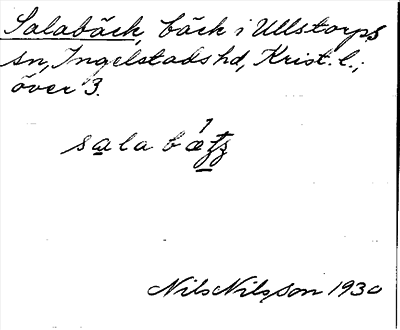 Salabäck, bäck i Ullstorps
sn, Ingelstads hd, Krist. l.;
över 3.
Nils Nilsson 1930